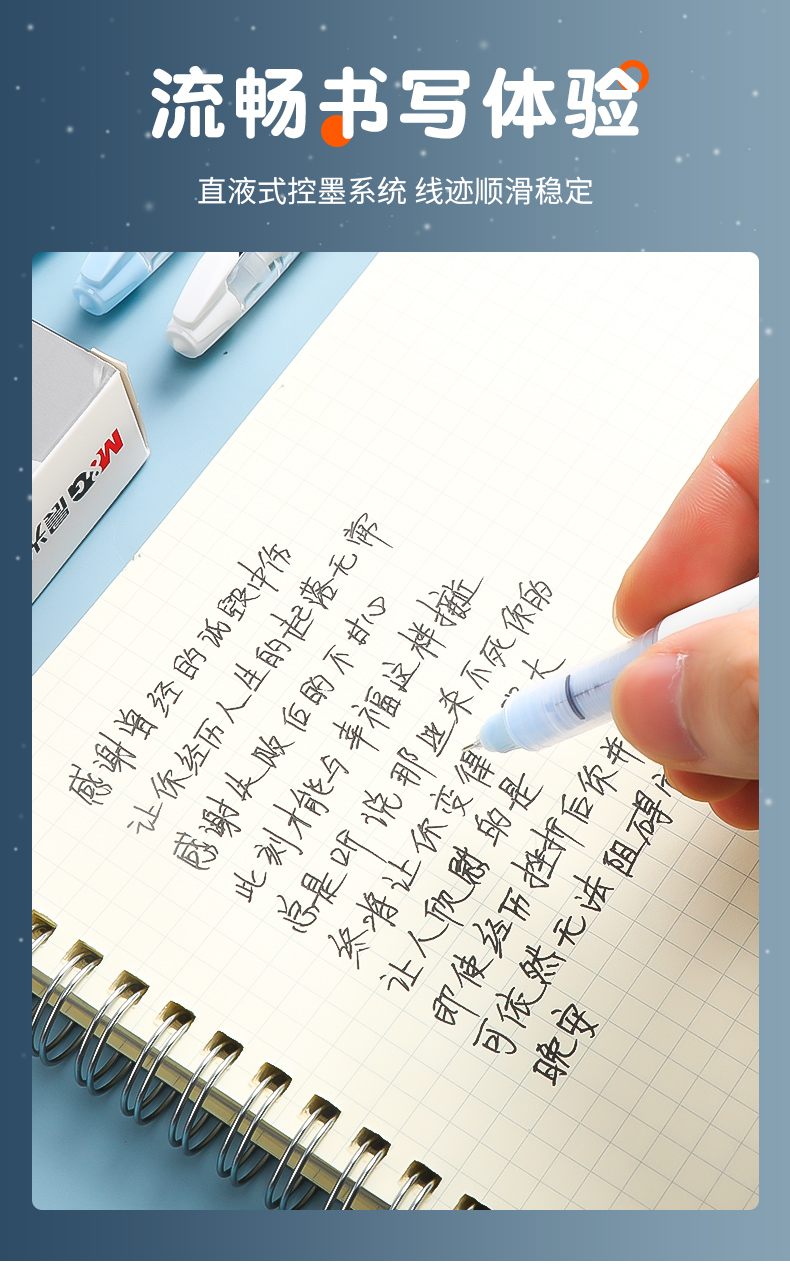 流畅书写体验
直液式控墨系统 线迹顺滑稳定
M&G晨光
感谢曾经的诋毁中伤
让你经历人生的起落无常
感谢失败后的不甘心
此刻才能与幸福这样接近
总是听说那些杀不死你的
终将让你变得 大
让人欣慰的是
即使经历挫折后你并
可依然无法阻碍
晚安